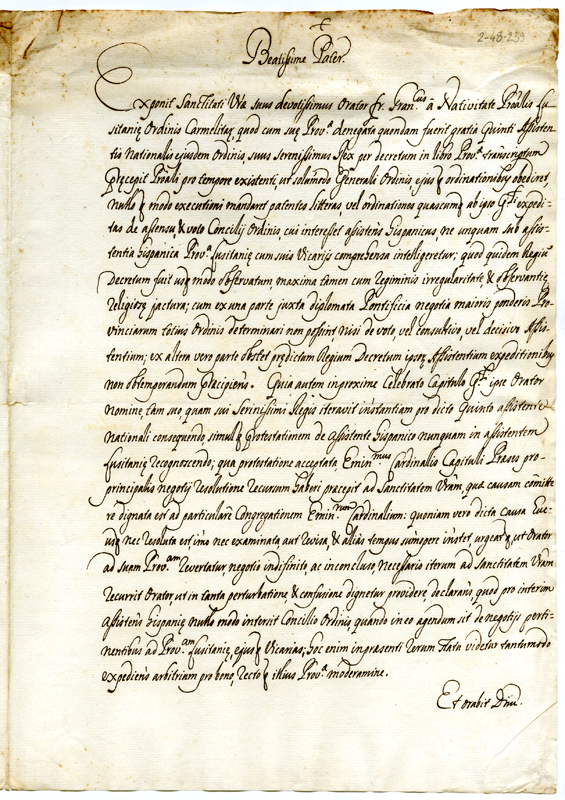 2-48-239
Beatissime Pater.
Exponit Sanctitati Vrã suus devotissimus Orator fr. Fran.cus â Nativitate Prõalis Lu-
sitanię Ordinis Carmelitar, quod cum suę Prov.ę denegata quondam fuerit gratia Quinti Assisten-
tis Nationalis ejusdem Ordinis, suus Serenissimus Rex per decretum in libro Prov.ę transcriptum
Pręcepit Prõali pro tempore existenti, ut solumõdo Generali Ordinis, ejusq ordinationibus obediret,
nulloq modo executioni mandaret patentes litteras, vel ordinationes quascumq ab ipso G.li expedi-
tas de assensu & voto Concilij Ordinis, cui interesset assistens Hispanicus, ne unquam sub assis-
tentia hispanica Prov.a Lusitanię cum suis Vicarijs comprehensa intelligeretur; quod quidem Regiũ
Decretum fuit usq modo observatum, maxima tamen cum Regiminis irregularitate & observantię
Religiosę jactura; cum ex una parte juxta diplomata Pontificia negotia maioris ponderis Pro-
vinciarum totius Ordinis determinari non possint, nisi de voto, vel consultivo, vel decisivo Assis-
tentium; ex altera vero parte obstet prędictum Regium Decretum ipsorũ Assistentium expeditionibus
non obtemperandum pręcipiens. Quia autem in proxime Celebrato Capitulo G.li ipse Orator
nomine tam suo, quam sui Serinissimi Regis iteravit instantiam pro dicto Quinto assistente
Nationali consequendo, simulq protestationem de assistente Hispanico nunquam in assistentem
Lusitanię recognoscendo; qua protestatione acceptata, Emin.mus Cardinalis Capituli Prases pro-
principalis negotij resolutione recursum haberi praecepit ad Sanctitatem Vram, quę causam cõmitte-
re dignata est ad particularẽ Congregationem Emin.rum Cardinalium: quoniam vero dicta causa huc-
usq nec resoluta est, imo nec examinata aut revisa, & alias tempus summopere instet urgeatq, ut Orator
ad suam Prov.am revertatur negotio indefinito, ac inconcluso, necessario iterum ad sanctitatem Vram
recurrit Orator, ut in tanta perturbatione, & confusione dignetur providere, declarans, quod pro interim
assistens Hispanię nullo modo intersit Concilio Ordinis, quando in eo agendum sit de negotijs perti-
nentibus ad Prov.am Lusitanię, ejusq Vicarias; hoc enim in prasenti rerum statu videtur tantumodo
expediens arbitrium pro bono, rectoq illius Prov.ę moderamine.
Et orabit Dñũ.